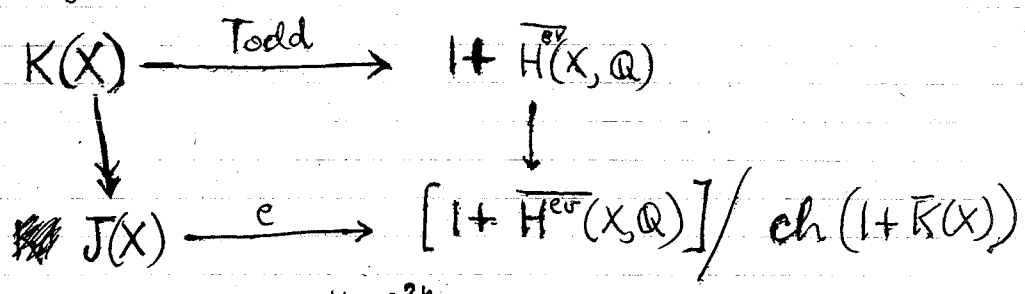 K(X) Todd 1 + H̅^{ev}(X, Q)
J(X) e [1 + H̅^{ev}(X,Q)] / ch(1 + K̅(X))